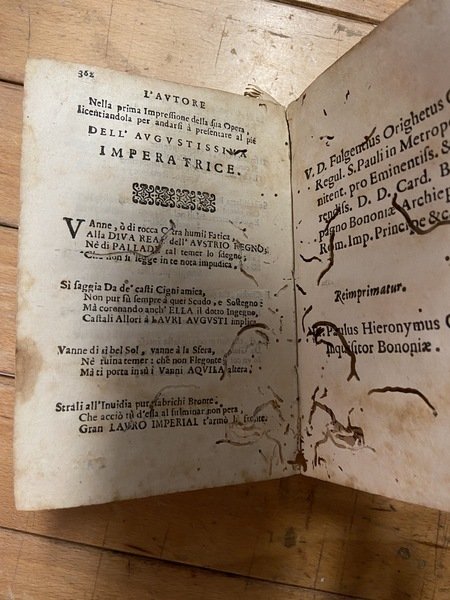 362
L'AVTORE
Nella prima Impressione della sua Opera,
licentiandola per andarsi à presentare al piè
DELL' AVGVSTISSIMA
IMPERATRICE.
VAnne, ò di rocca Cetra humil Fatica,
Alla DIVA REAL dell'AVSTRIO REGNO;
Nè di PALLADE tal temer lo sdegno;
Che non si legge in te nota impudica.
Sì saggia Da de' casti Cigni amica,
Non pur fù sempre à quei Scudo, e Sostegno:
Mà coronando anch' ELLA il dotto Ingegno,
Castali Allori à LAVRI AVGVSTI implica
Vanne di sì bel Sol, vanne à la Sfera,
Nè ruina temer: chè non Flegonte
Mà ti porta insù i Vanni AQVILA altera.
Strali all'Inuidia pur fabrichi Bronte.
Che acciò tù d'essa al fulminar non pera,
Gran LAVRO IMPERIAL t'armò la fronte.
V. D. Fulgentius Orighettus C
Regul. S. Pauli in Metropo
nitent. pro Eminentiss. &
rendiss. D. D. Card. B
pagno Bononiæ Archiep
Rom. Imp. Principe & c.
Reimprimatur.
Paulus Hieronymus G
Inquisitor Bononiæ.